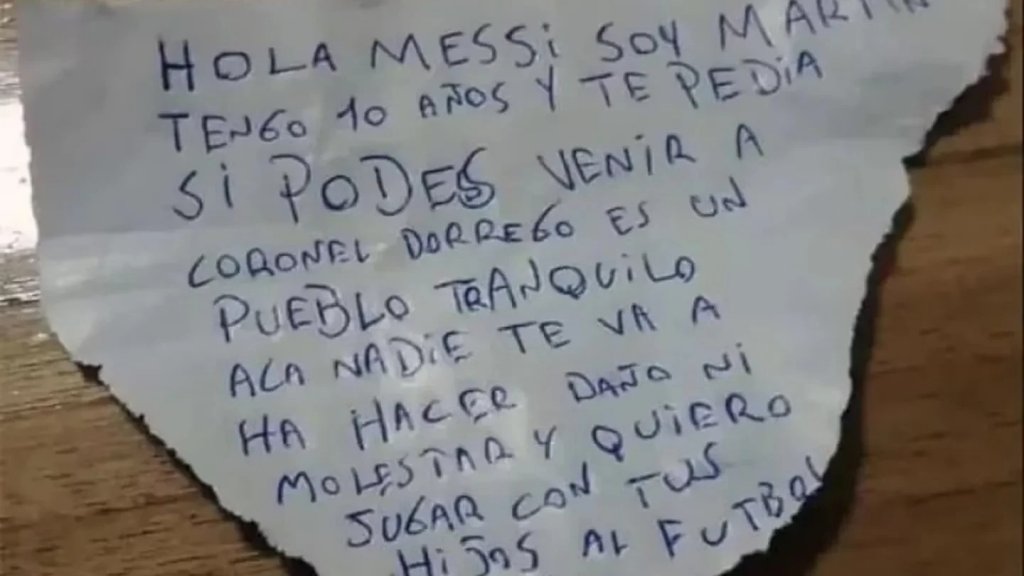 HOLA MESSi SOY MARTIN
TENGO 10 AÑOS Y TE PEDiA
Si PODES VENiR A
CORONEL DORREGO ES UN
PUEBLO TRANQUiLO
ACA NADiE TE VA A
HA HACER DAÑO Ni
MOLESTAR Y QUiERO
JUGAR CON TUS
HiJOS AL FUTBOL